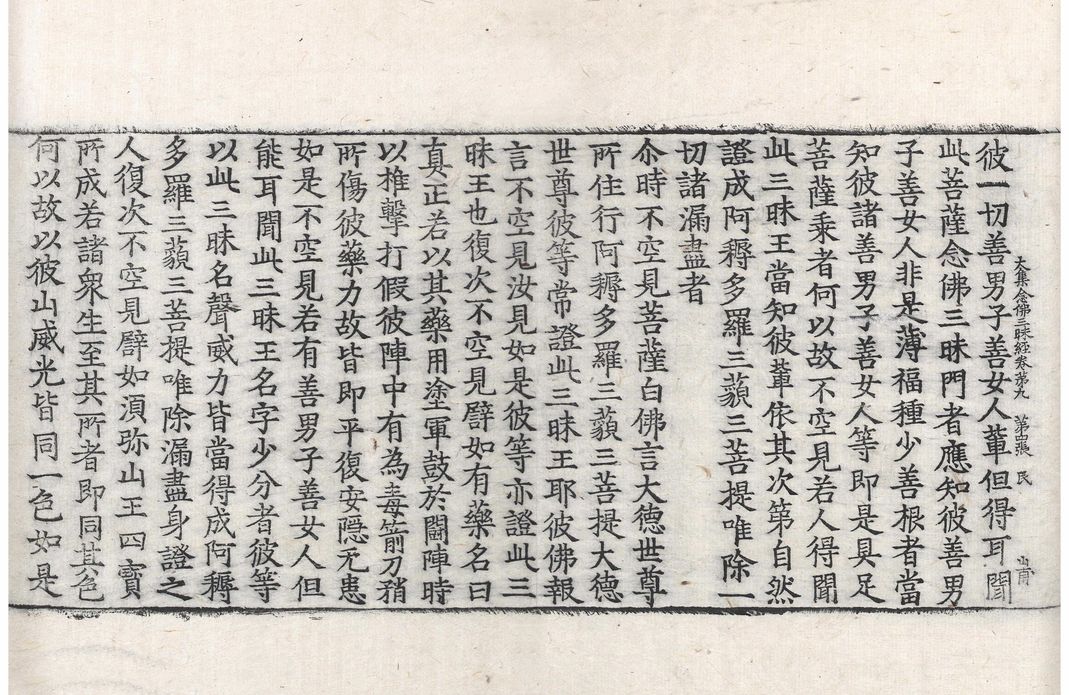 大集念佛三昧經卷第九 第四張 民
彼一切善男子善女人軰但得耳聞
此菩薩念佛三昧門者應知彼善男
子善女人非是薄福種少善根者當
知彼諸善男子善女人等即是具足
菩薩乘者何以故不空見若人得聞
此三昧王當知彼軰依其次第自然
證成阿耨多羅三藐三菩提唯除一
切諸漏盡者
尒時不空見菩薩白佛言大德世尊
所住行阿耨多羅三藐三菩提大德
世尊彼等常證此三昧王耶彼佛報
言不空見汝見如是彼等亦證此三
昧王也復次不空見譬如有藥名曰
真正若以其藥用塗軍鼓於鬪陣時
以推擊打假彼陣中有為毒箭刀矟
所傷彼藥力故皆即平復安隱无患
如是不空見若有善男子善女人但
能耳聞此三昧王名字少分者彼等
以此三昧名聲威力皆當得成阿耨
多羅三藐三菩提唯除漏盡身證之
人復次不空見譬如湏弥山王四寶
所成若諸衆生至其所者即同其色
何以故以彼山威光皆同一色如是